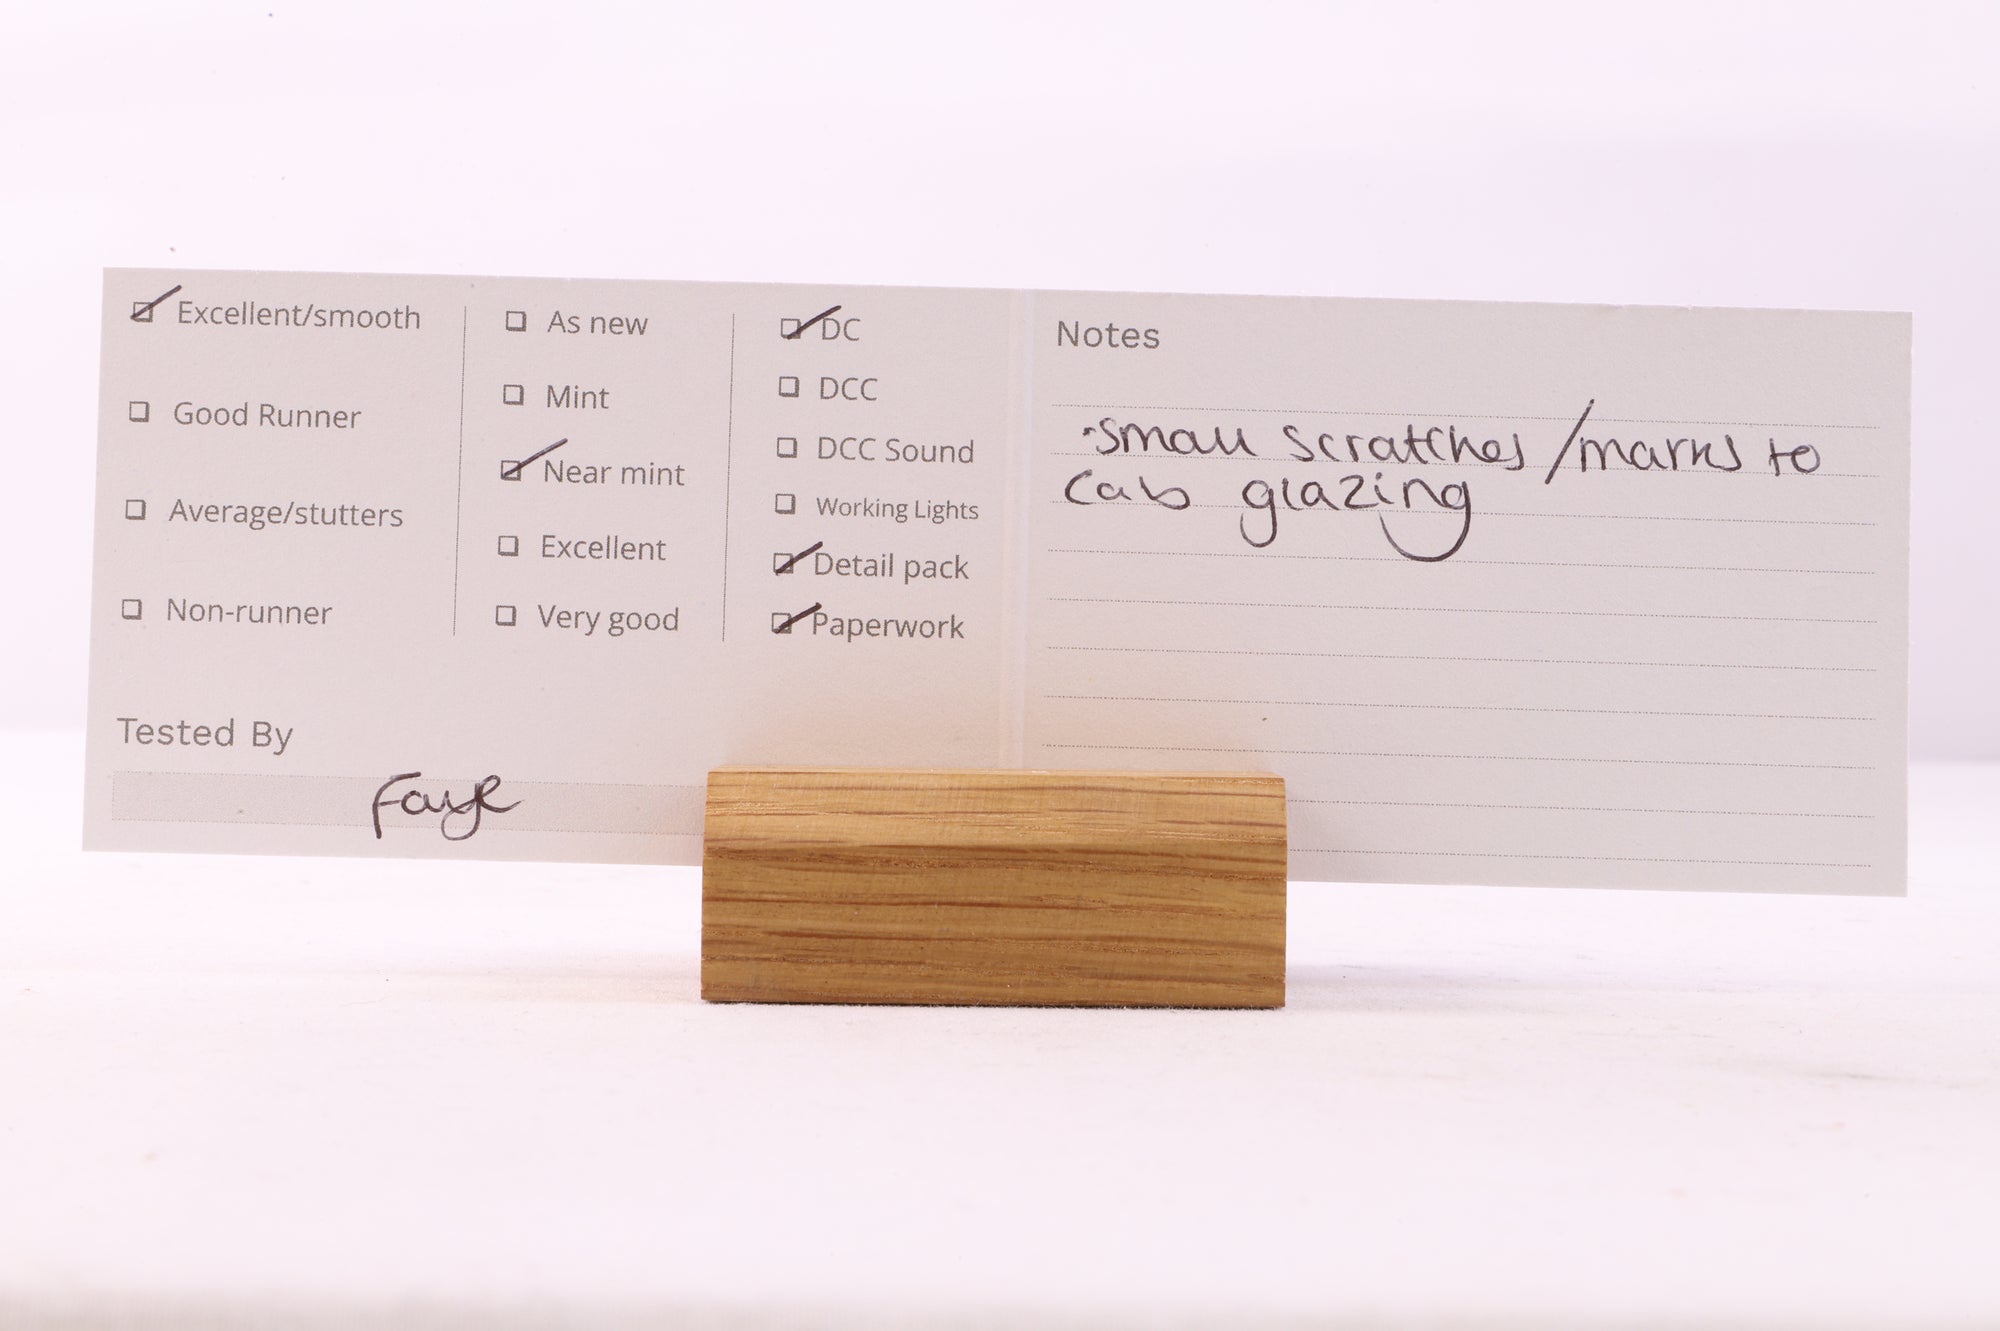 ☑ Excellent/smooth
☐ Good Runner
☐ Average/stutters
☐ Non-runner
☐ As new
☐ Mint
☑ Near mint
☐ Excellent
☐ Very good
☑ DC
☐ DCC
☐ DCC Sound
☐ Working Lights
☑ Detail pack
☑ Paperwork
Tested By
Faye
Notes
·small scratches/marks to
cab glazing